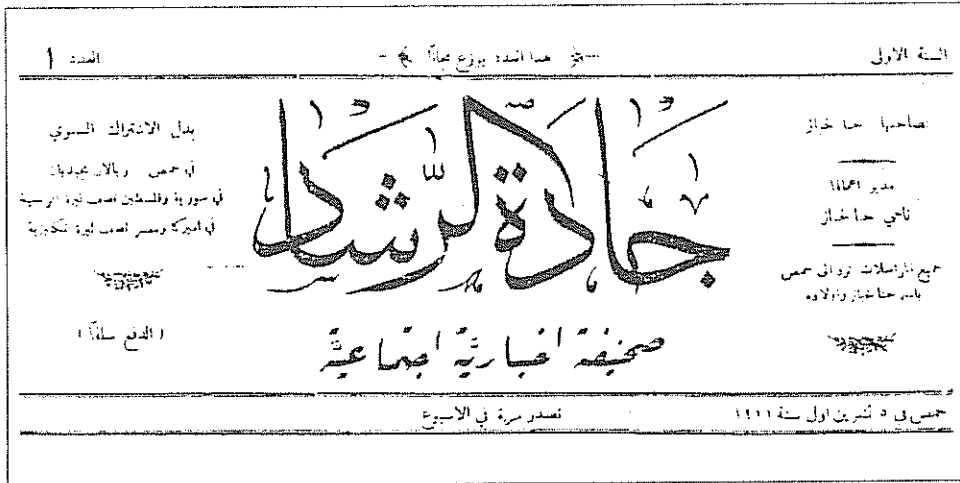 السنة الاولى
هذا العدد يوزع مجانًا
العدد ١
لصاحبها حنا خباز
مدير اعمالها
ناجي حنا خباز
جميع المراسلات ترد الى حمص
باسم حنا خباز واولاده
جادة الرشاد
صحيفة اخبارية اجتماعية
بدل الاشتراك السنوي
في حمص ريالان مجيديان
في سورية وفلسطين نصف ليرة
في اميركا ومصر نصف ليرة انكليزية
(الدفع سلفًا)
حمص في ٥ تشرين اول سنة ١٩١١
تصدر مرة في الاسبوع